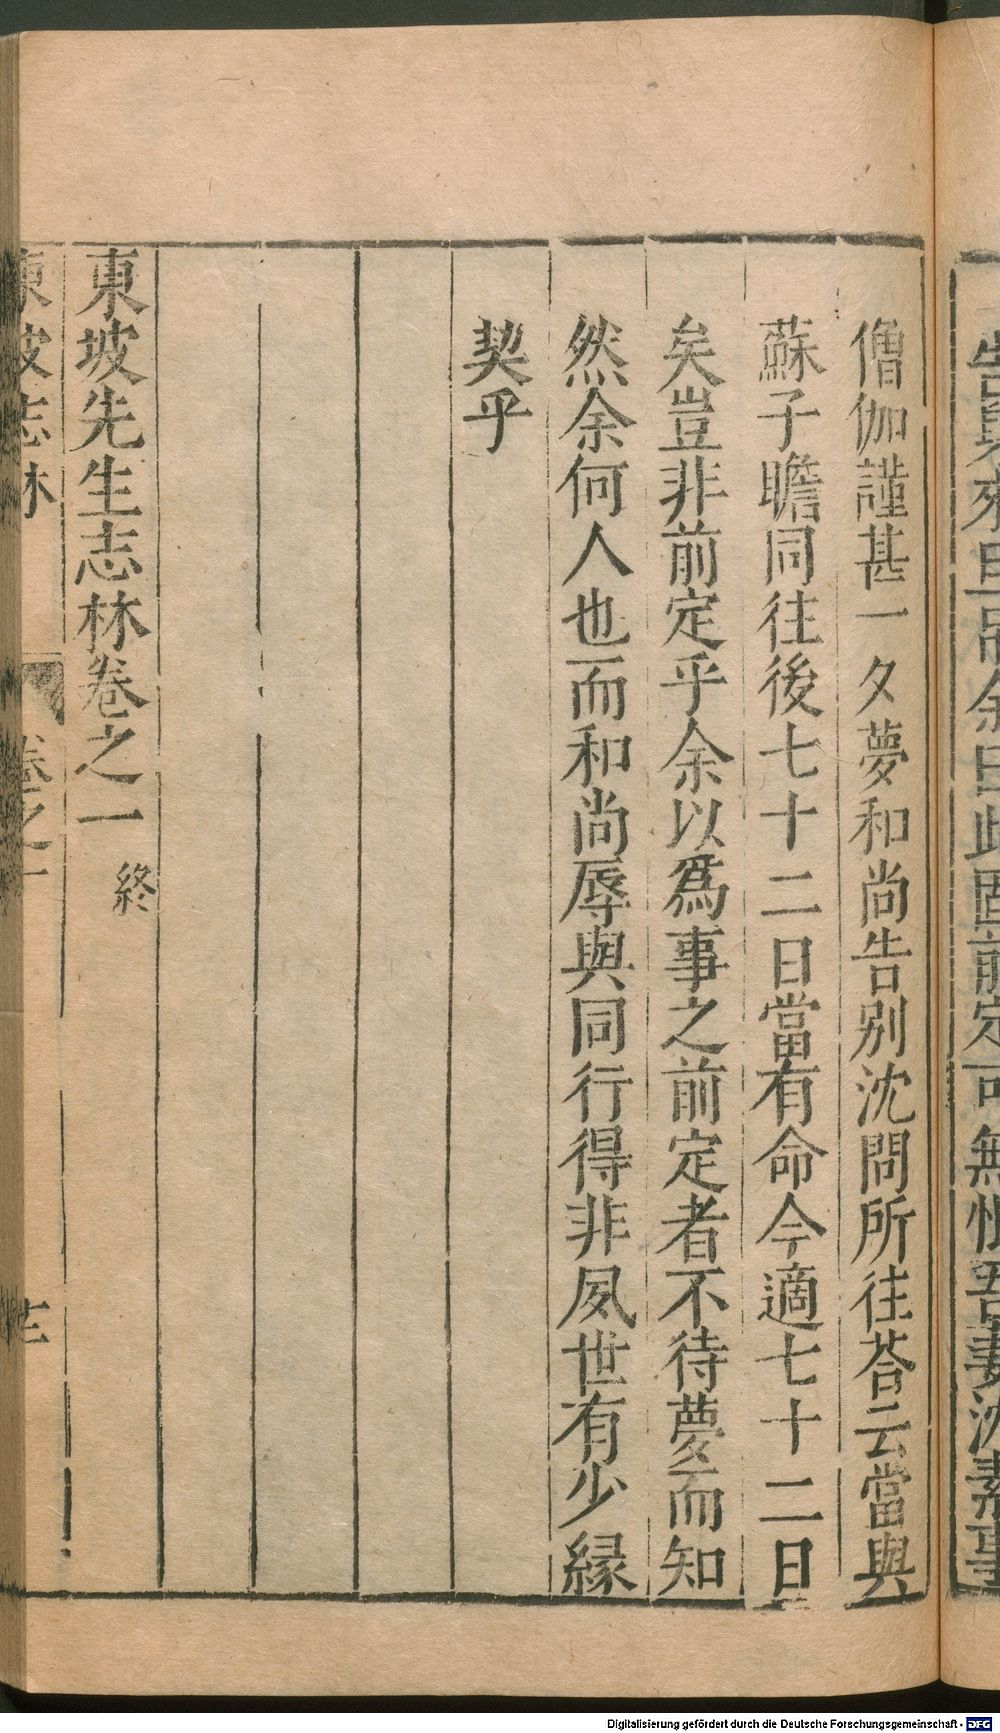 僧伽謹甚一夕夢和尚告別沈問所往荅云當與
蘇子瞻同往後七十二日當有命今適七十二日
矣豈非前定乎余以爲事之前定者不待夢而知
然余何人也而和尚辱與同行得非夙世有少縁
契乎
東坡先生志林卷之一 終
東坡志林 卷之一
Digitalisierung gefördert durch die Deutsche Forschungsgemeinschaft - DFG